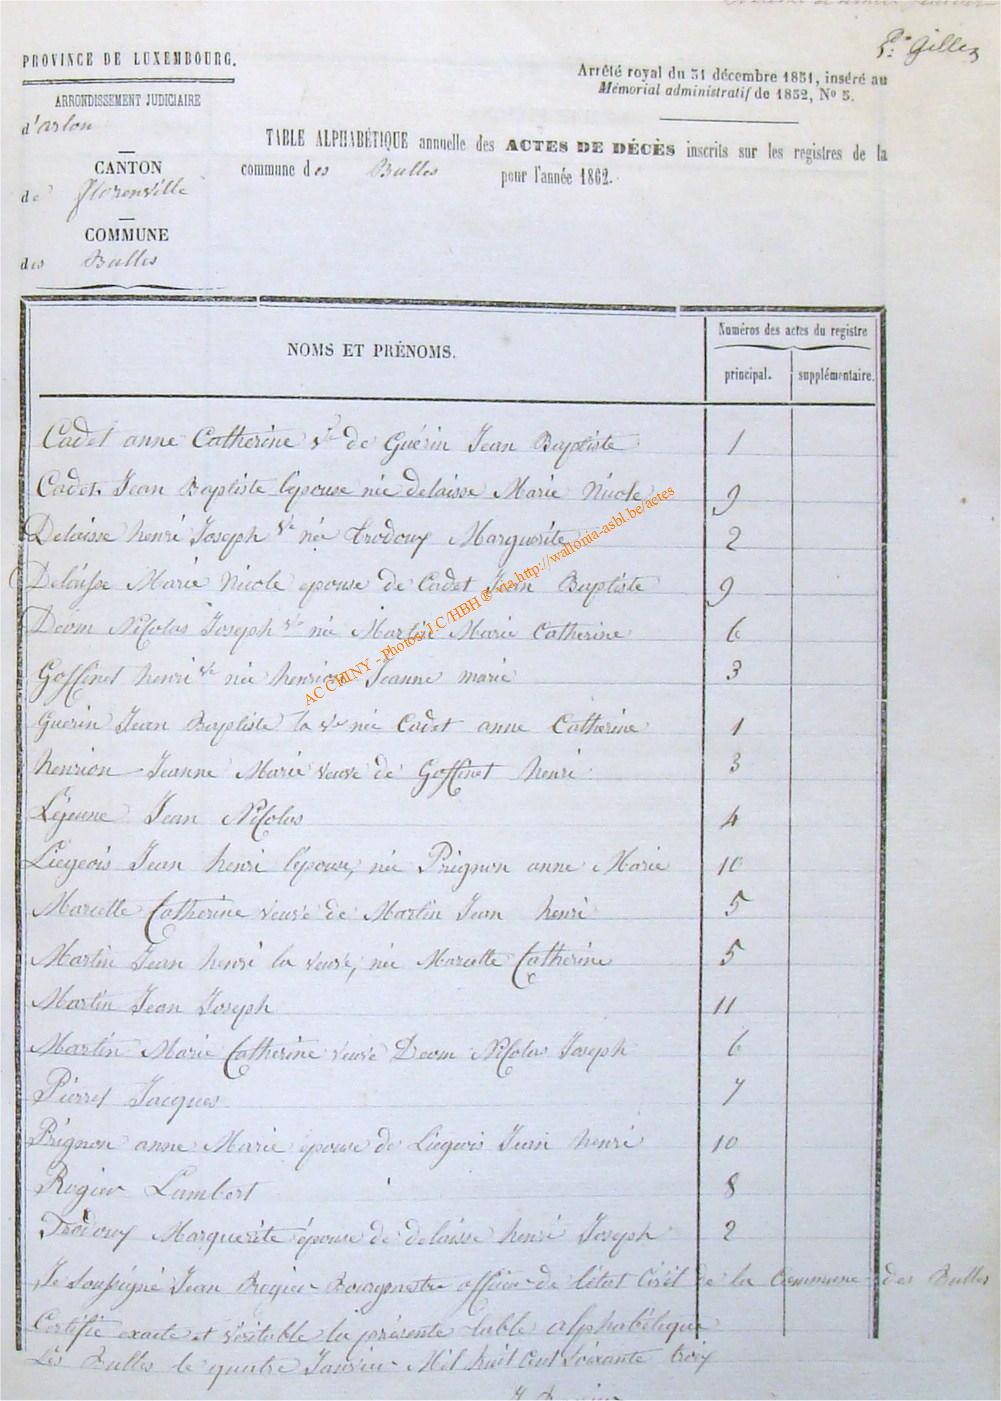 P. Gilles
PROVINCE DE LUXEMBOURG.
Arrêté royal du 31 décembre 1851, inséré au
Mémorial administratif de 1852, No 5.
ARRONDISSEMENT JUDICIAIRE
d'arlon
TABLE ALPHABÉTIQUE annuelle des ACTES DE DÉCÈS inscrits sur les registres de la
commune des Bulles pour l'année 1862.
CANTON
de florenville
COMMUNE
des Bulles
NOMS ET PRÉNOMS.
Numéros des actes du registre
principal. supplémentaire.
Cadet anne Catherine ve de Guérin Jean Baptiste 1
Cadet Jean Baptiste l'épouse née delaisse Marie Nicole 9
Delaisse henri Joseph ve née trodoux Marguerite 2
Delaisse Marie Nicole épouse de Cadet Jean Baptiste 9
Deom Nicolas Joseph ve née Martin Marie Catherine 6
Goffinet henri ve née henrion Jeanne marie 3
Guerin Jean Baptiste la ve née Cadet anne Catherine 1
henrion Jeanne Marie veuve de Goffinet henri 3
Lejeune Jean Nicolas 4
Liegeois Jean henri l'épouse, née Prignon anne Marie 10
Marcette Catherine veuve de Martin Jean henri 5
Martin Jean henri la veuve, née Marcette Catherine 5
Martin Jean Joseph 11
Martin Marie Catherine veuve Deom Nicolas Joseph 6
Pierret Jacques 7
Prignon anne Marie épouse de Liegeois Jean henri 10
Rogier Lambert 8
Trodoux Marguerite épouse de delaisse henri Joseph 2
Je soussigné Jean Rogier Bourgmestre officier de l'état Civil de la Commune des Bulles
Certifie exacte et véritable la présente table alphabétique
Les Bulles le quatre Janvier Mil huit cent soixante trois
AC CHINY - Photos J.C/HBH ® via http://wallonia-asbl.be/actes